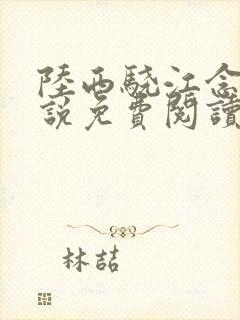 陸西驍江念
說免費閱讀
林喆